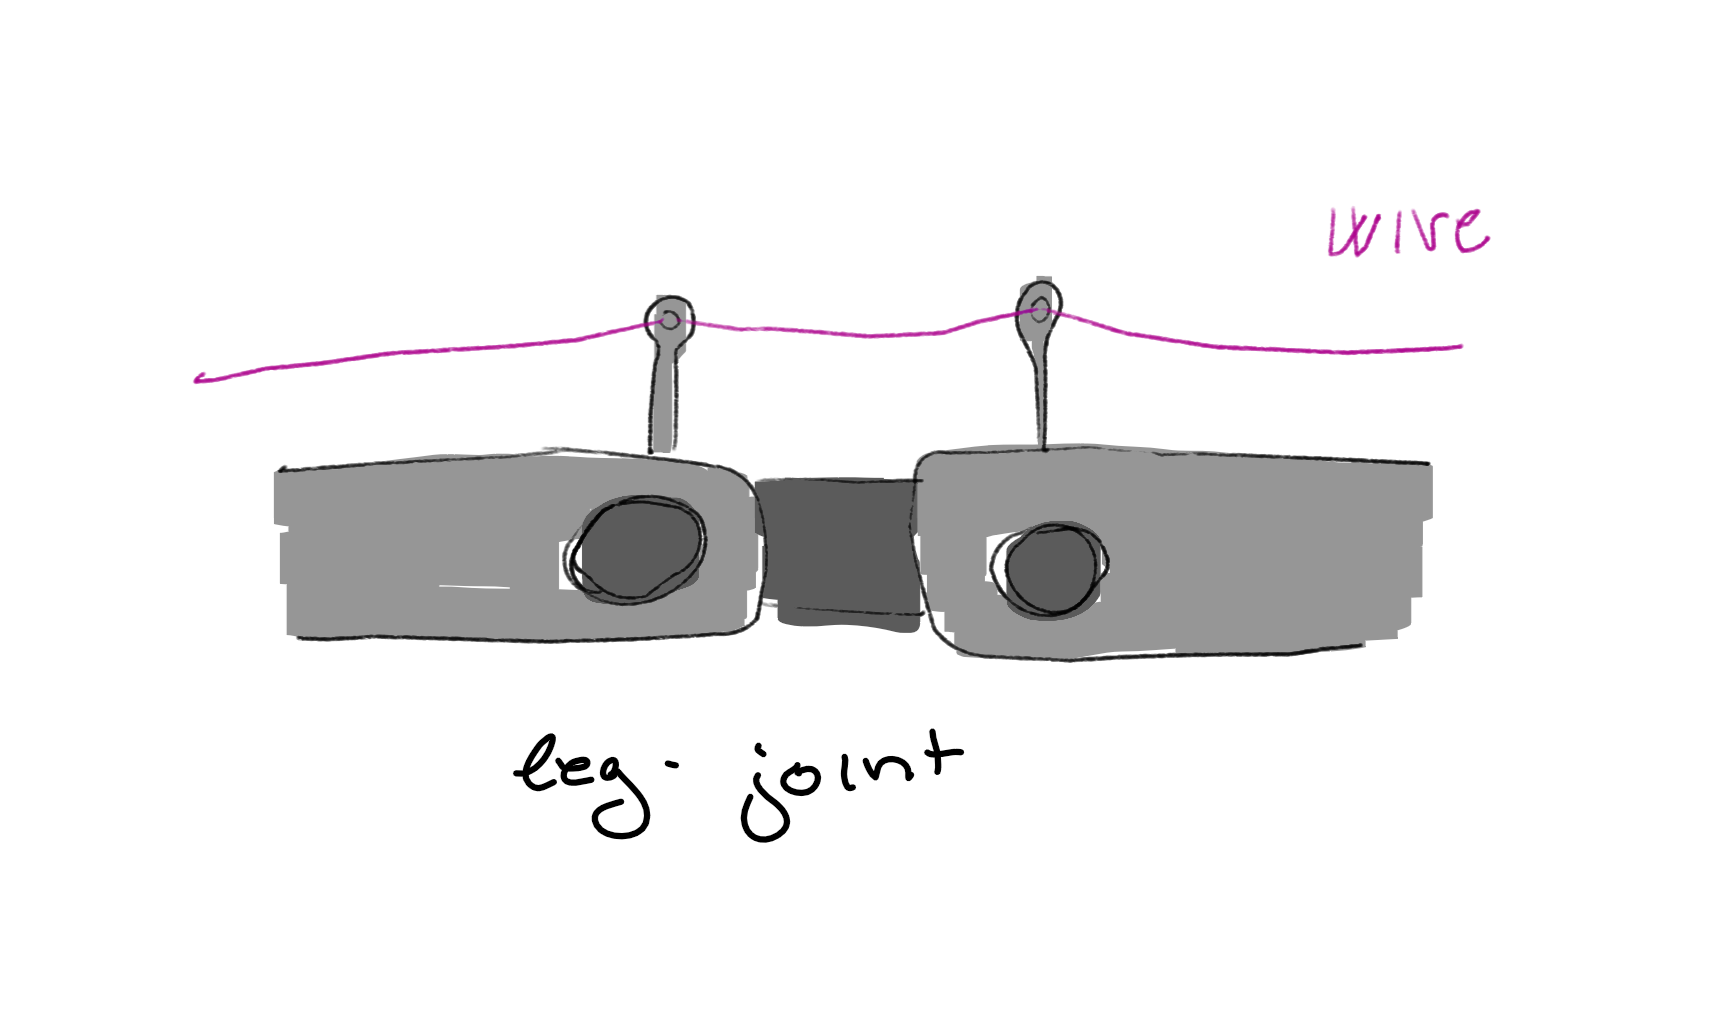 wire
leg - joint